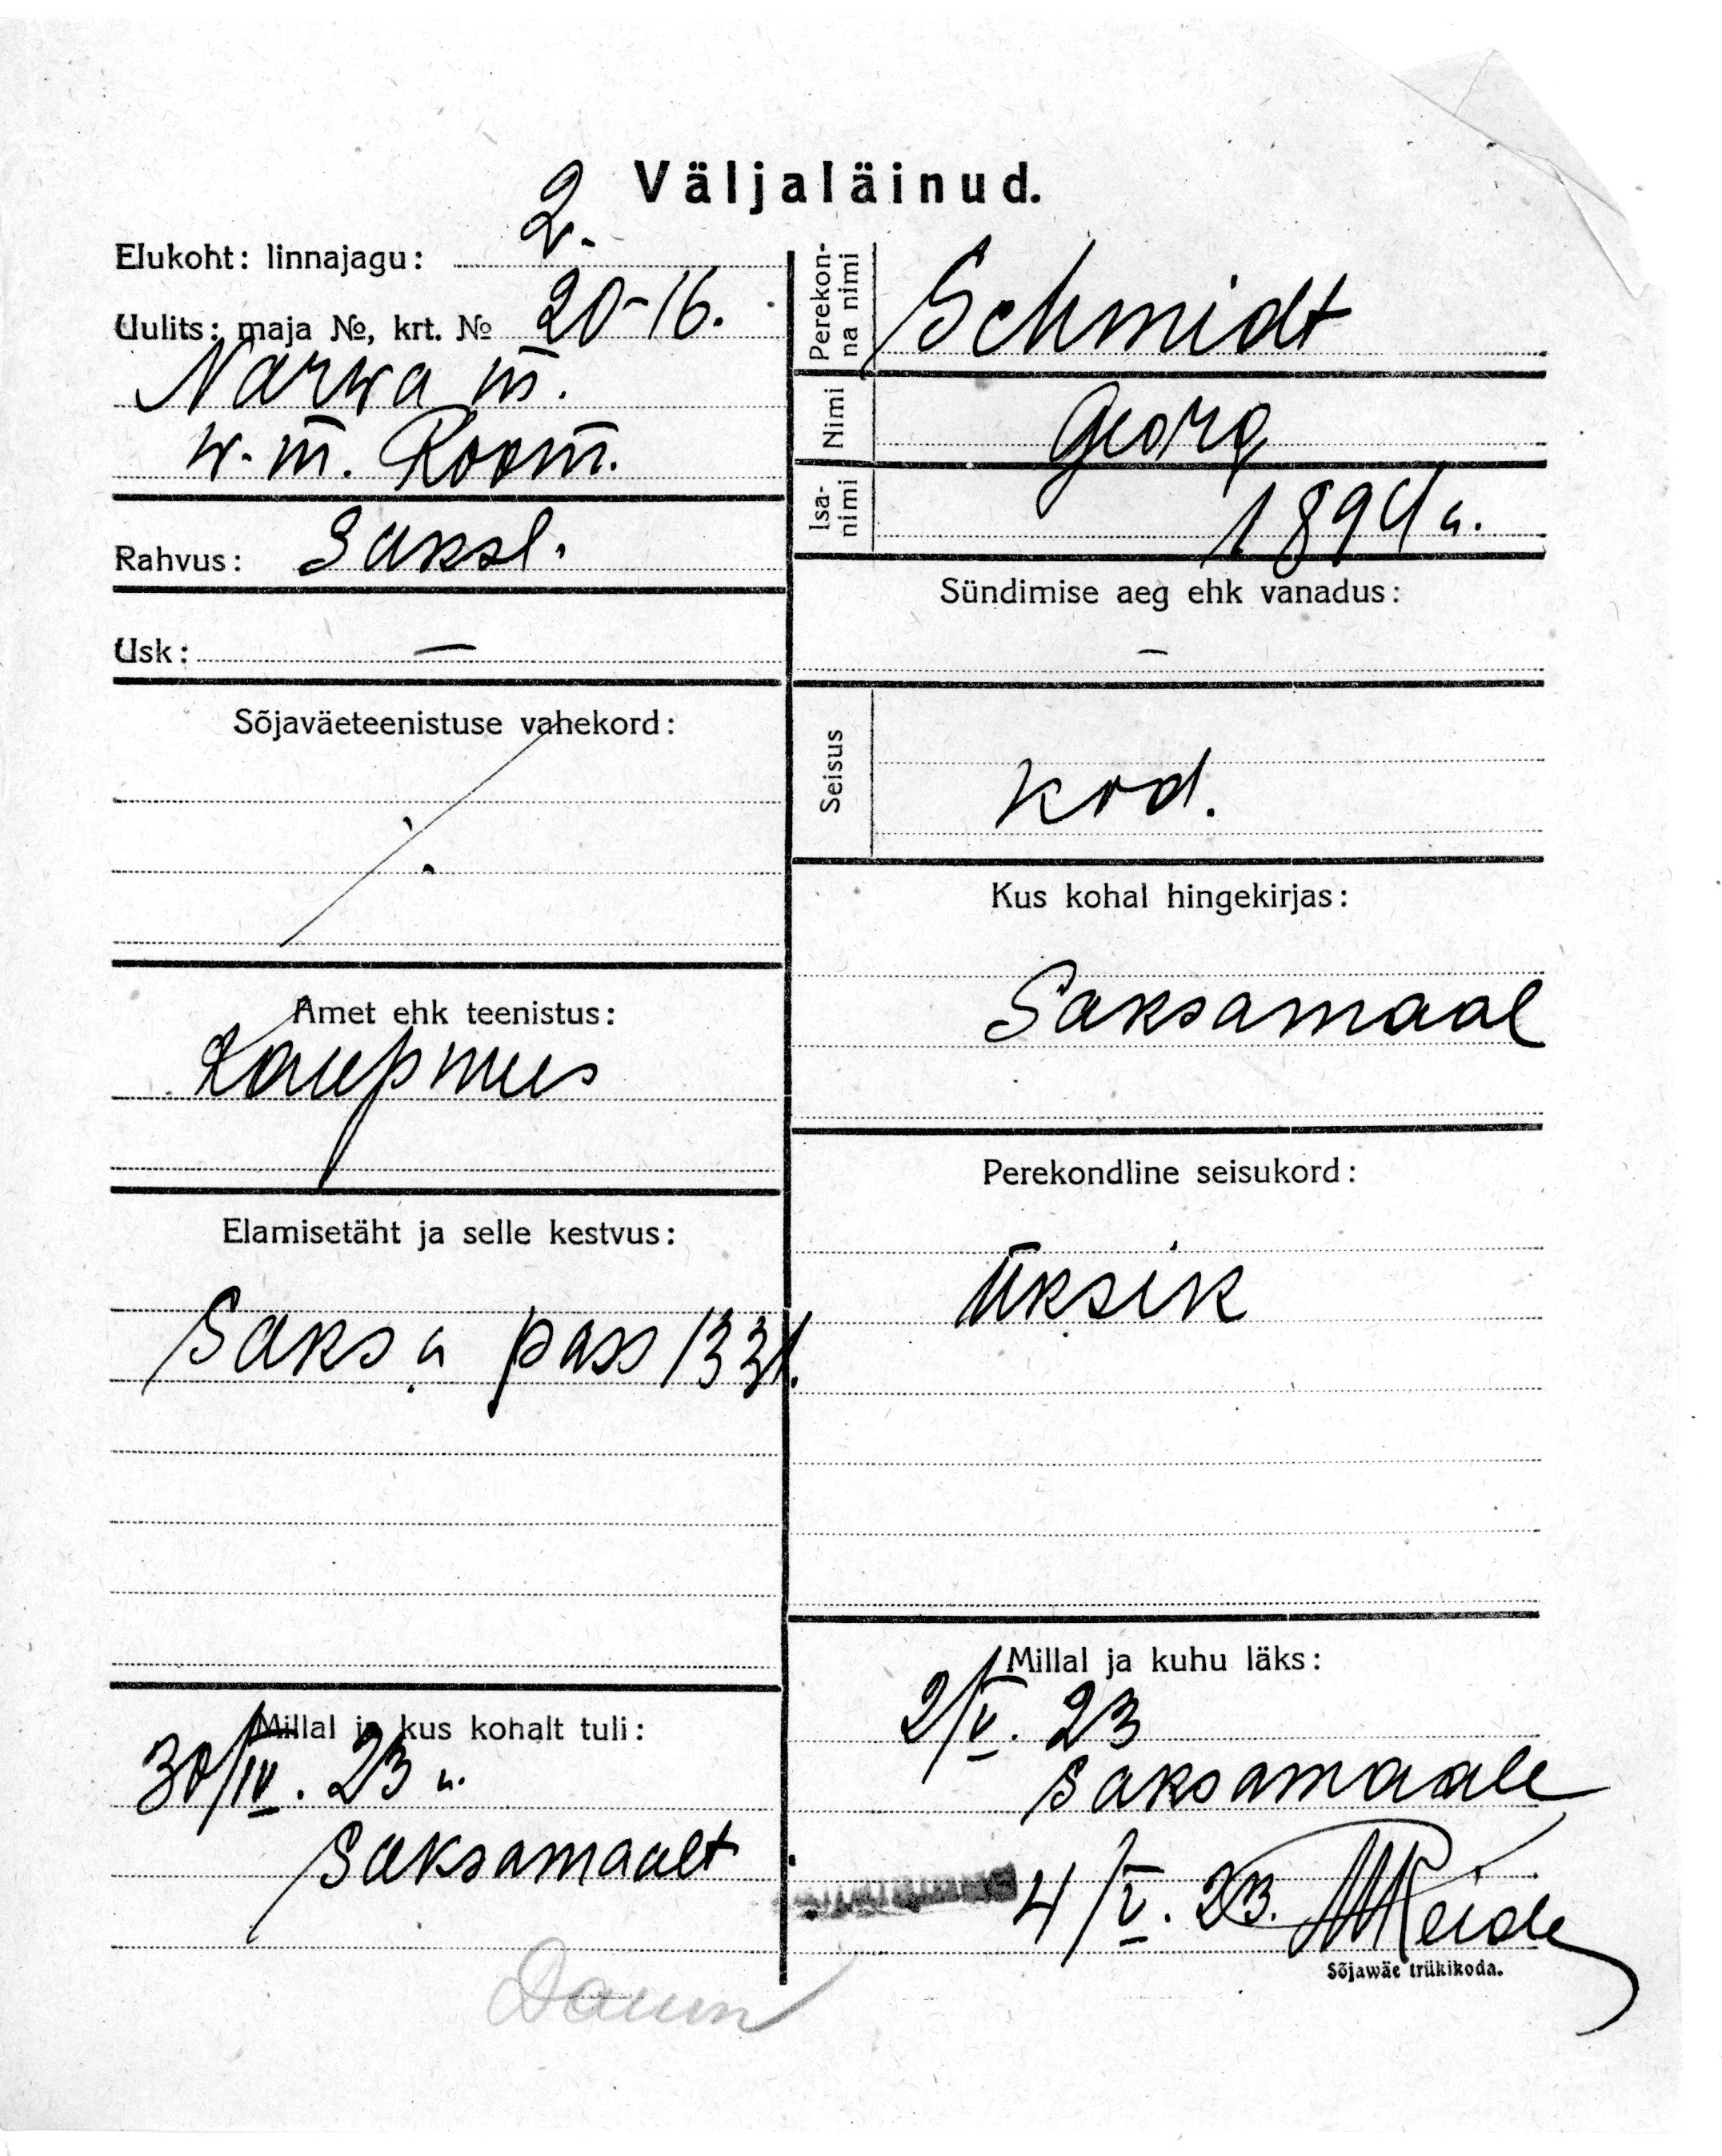 Väljaläinud.
Elukoht: linnajagu: 2.
Uulits: maja №, krt. № 20-16.
Narwa m.
w. m. Room.
Rahvus: Saksl.
Usk: —
Sõjaväeteenistuse vahekord:
Amet ehk teenistus:
Kaupmees
Elamisetäht ja selle kestvus:
Saksa pass 1331.
Millal ja kus kohalt tuli:
30/IV. 23 a.
Saksamaalt
Perekonna nimi
Schmidt
Nimi
Georg
Isanimi
1894 a.
Sündimise aeg ehk vanadus:
—
Seisus
kod.
Kus kohal hingekirjas:
Saksamaal
Perekondline seisukord:
Üksik
Millal ja kuhu läks:
2/V. 23
Saksamaale
4/V. 23.
Sõjawäe trükikoda.